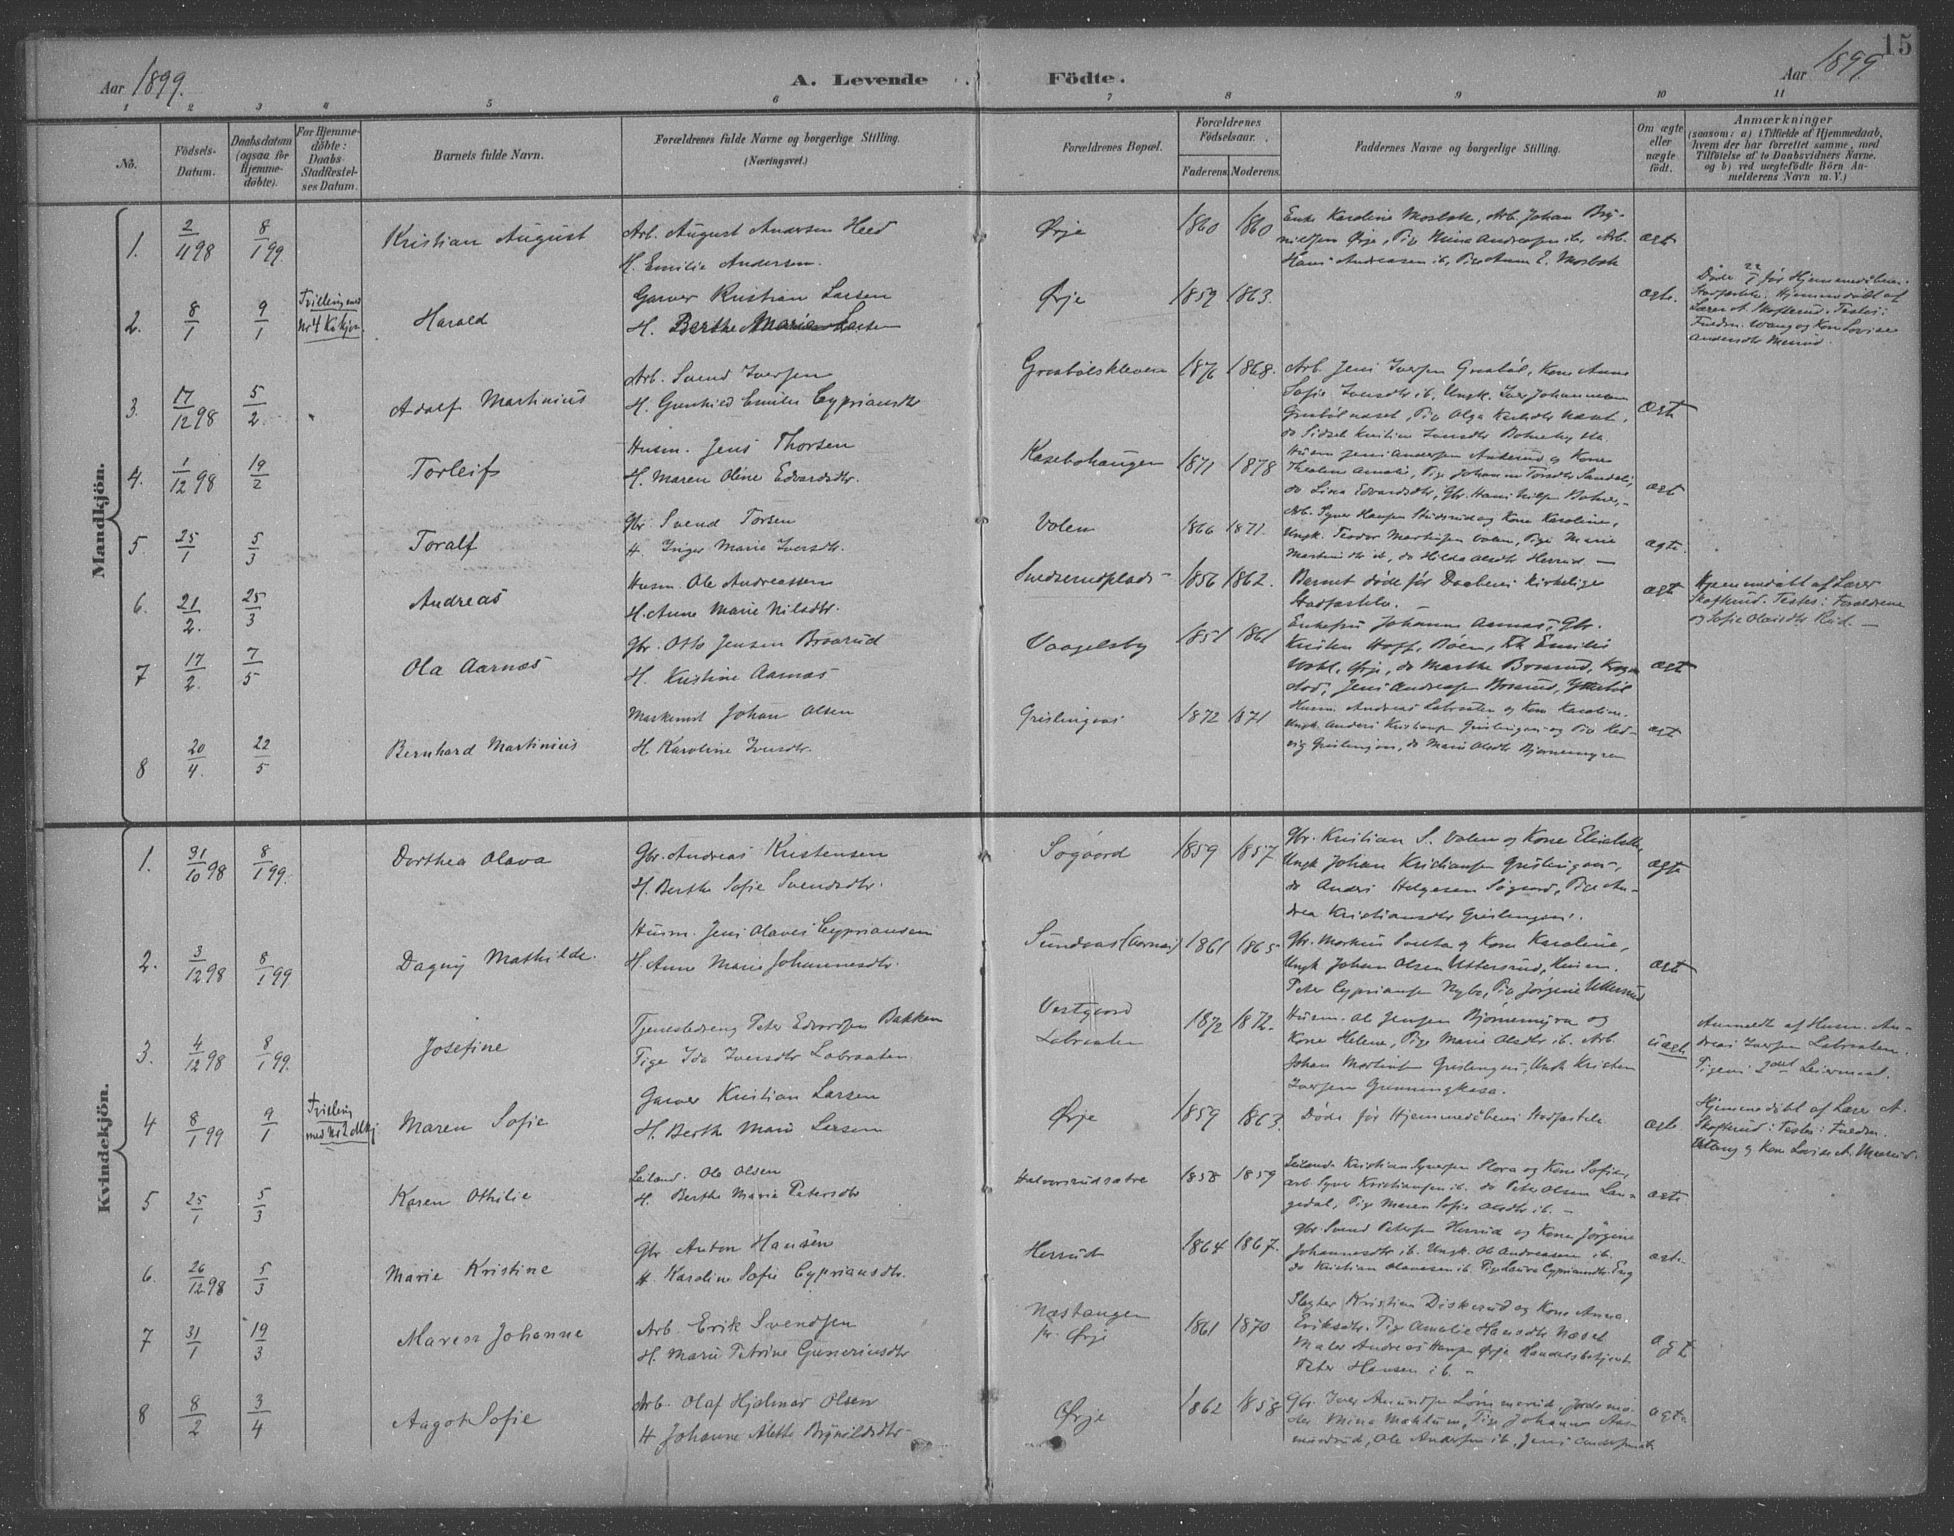 15
Aar 1899.
A. Levende Födte.
Aar 1899
1 2 3 4 5 6 7 8 9 10 11
No.
Födsels-Datum.
Daabsdatum (ogsaa for Hjemme-döbte).
For Hjemme-döbte: Daabs-Stadfæstel-ses Datum.
Barnets fulde Navn.
Forældrenes fulde Navne og borgerlige Stilling. (Næringsvei.)
Forældrenes Bopæl.
Forældrenes Födselsaar.
Faderens. Moderens.
Faddernes Navne og borgerlige Stilling.
Om ægte eller uægte födt.
Anmærkninger
(saasom: a) i Tilfælde af Hjemmedaab,
hvem der har forrettet samme, med
Tilföielse af to Daabsvidners Navne.
og b) ved uægtefödte Börn An-
melderens Navn m. V.)
Mandkjön.
1. 2/11 98 8/1 99. Kristian August
Arb. August Andersen Heed
H. Emilie Andersen.
Ørje 1860 1860
Enke Karoline Mosbæk, Arb. Johan Bry-
nildsen Ørje, Pige Mina Andreasen ib. Arb.
Hans Andreasen ib, Pige Anna E. Mosbæk
ægte
2. 8/1 9/1 Tvilling med No 4 Kvkjøn. Harald
Garver Kristian Larsen
H. Berthe Marie Larsen
Ørje 1859 1863. ægte.
Døde 22/1 før Hjemmedaabens
Stadfæstelse. Hjemmedøbt af
Lærer A. Skofterud. Testes:
Fuldm. Wang og Kone Lovise
Andersdtr Merud.
3. 17/12 98 5/2. Adolf Martinius
Arb. Svend Iversen
H. Gunhild Emilie Cypriansdtr
Grasbølskleven 1876 1868.
Arb. Jens Iversen Grasbøl, Kone Anne
Sofie Iversdtr ib. Ungk. Iver Johannesen
Grasbølnæset, Pige Olga Karlsdtr Næset,
do Sidsel Kristine Iversdtr
ægte
4. 1/12 98 19/2 Torleif
Husm. Jens Thorsen
H. Maren Oline Edvardsdtr.
Kasebohaugen 1871 1878
Husm Jens Andersen og Kone
Amalie, Pige Tordtr
do Lina Edvardsdtr, Gbr. Hans Nilsen
ægte
5. 25/1 5/3 Toralf
Gbr. Svend Torsen
H. Inger Marie Iversdtr.
Volen 1866 1871.
Arb. Syver Hansen og Kone Karoline,
Ungk. Teodor Martinsen Volen, Pige Marie
Martinsdtr ib, do Hilda Olsdtr Herrud. —
ægte.
6. 21/2. 25/3 Andreas
Husm. Ole Andreassen
H. Anne Marie Nilsdtr.
1856 1862.
Barnet døde før Daabens kirkelige
Stadfæstelse. —
ægte
Hjemmedøbt af Lærer
Skofterud. Testes: Forældrene
og Sofie Olaisdtr Rud. —
7 17/2. 7/5 Ola Aarnæs
Gbr. Otto Jensen Braarud
H. Kristine Aarnæs
Vaagelsby 1851 1861
Enkefru Johanne Aarnæs, Gbr.
Kristen Hoff, Bøen, Frk Emilie
Wohl, Ørje, do Marthe Braarud,
Jens Andreasen Braarud,
ægte
8 20/4. 22/5 Bernhard Martinius
Johan Olsen
H. Karoline Iversdtr.
Grislingaas 1872 1871
Husm. Andreas Labraaten og Kone Karoline.
Ungk. Anders Kristiansen Grislingaas og Pige Hed-
vig Grislingaas, do Marie Olsdtr Bjørnemyren
ægte
Kvindekjön.
1. 31/10 98 8/1 99. Dorthea Olava
Gbr. Andreas Kristensen
H. Berthe Sofie Svendsdtr.
Søgaard 1859 1857
Gbr. Kristian S. Volen og Kone Elisabeth,
Ungk Johan Kristiansen Grislingaas,
do Anders Helgesen Søgaard, Pige An-
drea Kristiansdtr Grislingaas.
ægte
2. 3/12 98 8/1 99 Dagny Mathilde.
Husm. Jens Olaves Cypriansen
H. Anne Marie Johannesdtr.
Sundaas (Aarnæs) 1861 1865
Gbr. Markus og Kone Karoline,
Ungk Johan Olsen Uttersrud, Husm.
Peter Cypriansen Nybø, Pige Jørgine Uttersrud
ægte
3. 4/12 98 8/1 99. Josefine
Tjenestedreng Peter Edvardsen Bakken
Pige Ida Iversdtr Labraaten.
Vestgaard
Labraaten
1872 1872.
Husm. Ole Jensen Bjørnemyra og
Kone Helene, Pige Marie Olsdtr ib. Arb.
Johan Martinsen Grislingaas, Ungk Kristen
Iversen Grønningkasa.
uægte
Anmeldt af Husm. An-
dreas Iversen Labraaten.
Pigens 2det Leiermaal.
4 8/1 99 9/1 Tvilling med No 2 Mkj Maren Sofie
Garver Kristian Larsen
H. Berthe Marie Larsen
Ørje 1859 1863.
Døde før Hjemmedaabens Stadfæstelse
ægte.
Hjemmedøbt af Lærer A.
Skofterud: Testes: Fuldm.
Wang og Kone Lovise A. Merud.
5 25/1 5/3 Karen Othilie
Leiland. Ole Olsen
H. Berthe Marie Petersdtr
Halvorsrudsætre 1858 1859
Leilænd. Kristian Syversen Flora og Kone Sofie,
Arb Syver Kristiansen ib. do Peter Olsen Lan-
gedal, Pige Maren Sofie Olsdtr ib. —
ægte
6. 26/12 98 5/3 Marie Kristine
Gbr Anton Hansen
H. Karoline Sofie Cypriansdtr.
Herrud 1864 1867.
Gbr. Svend Petersen Herrud og Kone Jørgine
Johannesdtr ib. Ungk. Ole Andreassen ib.
do Kristian Olavesen ib. Pige Laura Cypriansdtr. Eng
ægte.
7 31/1 19/3 Maren Johanne
Arb. Erik Svendsen
H. Marie Petrine Guneriusdtr
Næstangen
pr. Ørje
1861 1870
Slagter Kristian Diskerud og Kone Anna
Eriksdtr. Pige Amalie Hansdtr Næset
Maler Andreas Hansen Ørje Handelsbetjent
Peter Hansen ib. —
ægte
8 8/2 3/4 Aagot Sofie
Arb. Olaf Hjalmar Olsen
H Johanne Alette Brynildsdtr
Ørje 1862 1858
Gbr. Iver Amundsen Lømmerik, Jordmo-
der Mina Mohlum, Pige Johanne Aas-
mundrud, Ole Andersen ib, Jens Andersen ib
ægte